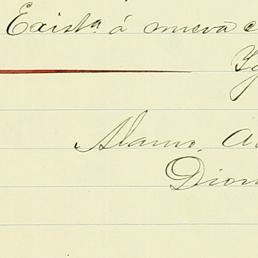 Exista á nueva c
Alamo. A
Dion